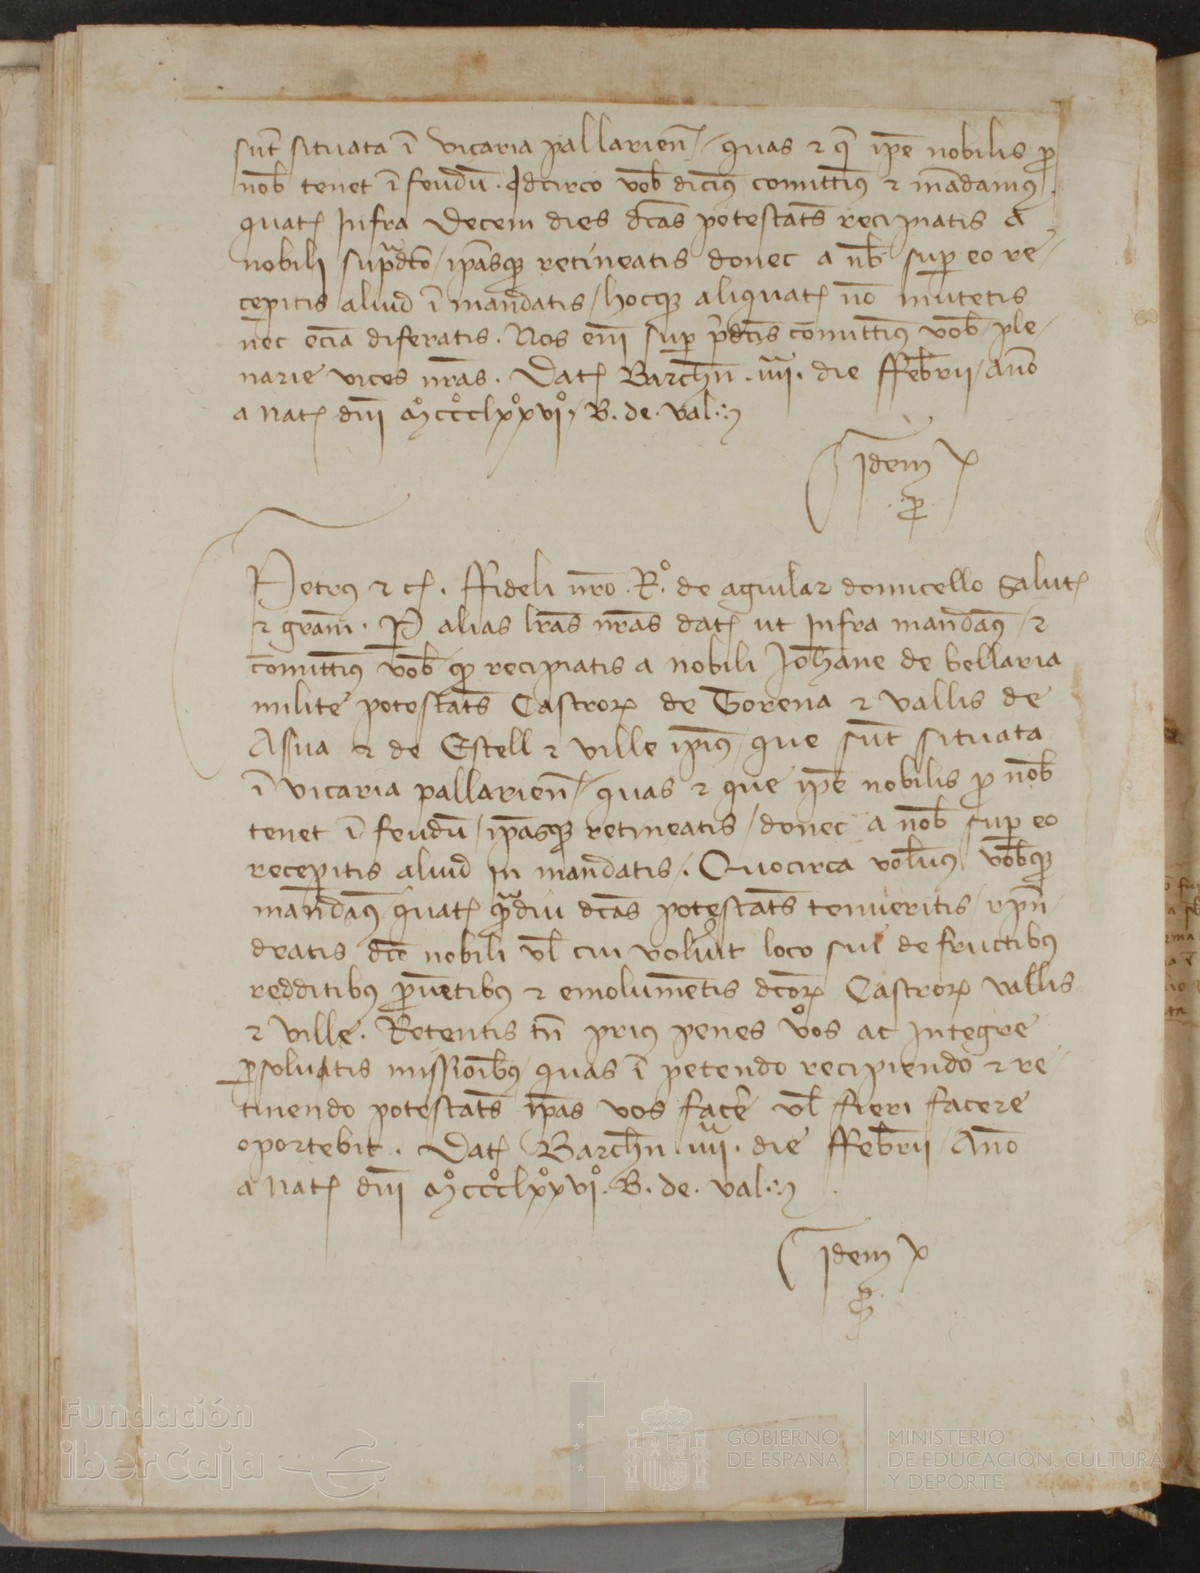 sūt situata ī vicaria pallarieñ / quas ⁊ q̄ ip̄e nobilis ꝓ
nob̄ tenet ī feudū. Idcirco vob̄ dicim⁹ comittim⁹ ⁊ mādamus.
quatꝭ infra decem dies dc̄as potestatē recipiatis a
nobili supᵃdc̄o / ip̄asqꝫ retineatis donec a nob̄ suꝑ eo re-
cepitis aliud ī mandatis / hocqꝫ aliquatꝭ nō mutetis
nec ec̄ia diferatis. Nos em̄ suꝑ p̄dc̄is cōmittim⁹ vob̄ ple-
narie vices nr̄as. Datꝭ Barch̄n .iiii. die ffebr̄ii / Año
a natꝭ dn̄i mº ccccº lxxº viº / B. de. val.
idem
ꝓ
Petrus ⁊ cꝭ. ffideli nr̄o .Rº. de aguilar domicello salutꝭ
⁊ grām. Ꝑ alias lr̄as nr̄as datꝭ ut infra mandam⁹ / ⁊
cōmittim⁹ vob̄ qꝫ recipiatis a nobili Joh̄ane de bellaria
milite potestatē Castroꝝ de Torena ⁊ vallis de
Assua ⁊ de Estell ⁊ ville ipi⁹ / que sūt situata
ī vicaria pallarieñ / quas ⁊ que ip̄e nobilis ꝓ nob̄
tenet ī feudū / ip̄asqꝫ retineatis / donec a nob̄ suꝑ eo
receperitis aliud in mandatis /. Quocirca volum⁹ vob̄qꝫ
mandam⁹ quatꝭ qᵃdiu dc̄as potestatē tenueritis / rn̄-
deatis dc̄o nobili vl̄ cui voluit loco sui de fructibus
redditibus ꝓuētibus ⁊ emolumētis dc̄oꝝ Castroꝝ vallis
⁊ ville. Retentis tn̄ prius penes vos ac integre
ꝑsolutis missioīb⁹ quas ī petendo recipiendo ⁊ re-
tinendo potestatē ip̄as vos facē vl̄ fieri facere
oportebit. Datꝭ Barch̄n .iiii. die ffebr̄ii / Año
a natꝭ dn̄i mº ccccº lxxº viº. B. de. val.
idem
ꝓ
Fundación
iberCaja
GOBIERNO
DE ESPAÑA
MINISTERIO
DE EDUCACIÓN, CULTURA
Y DEPORTE